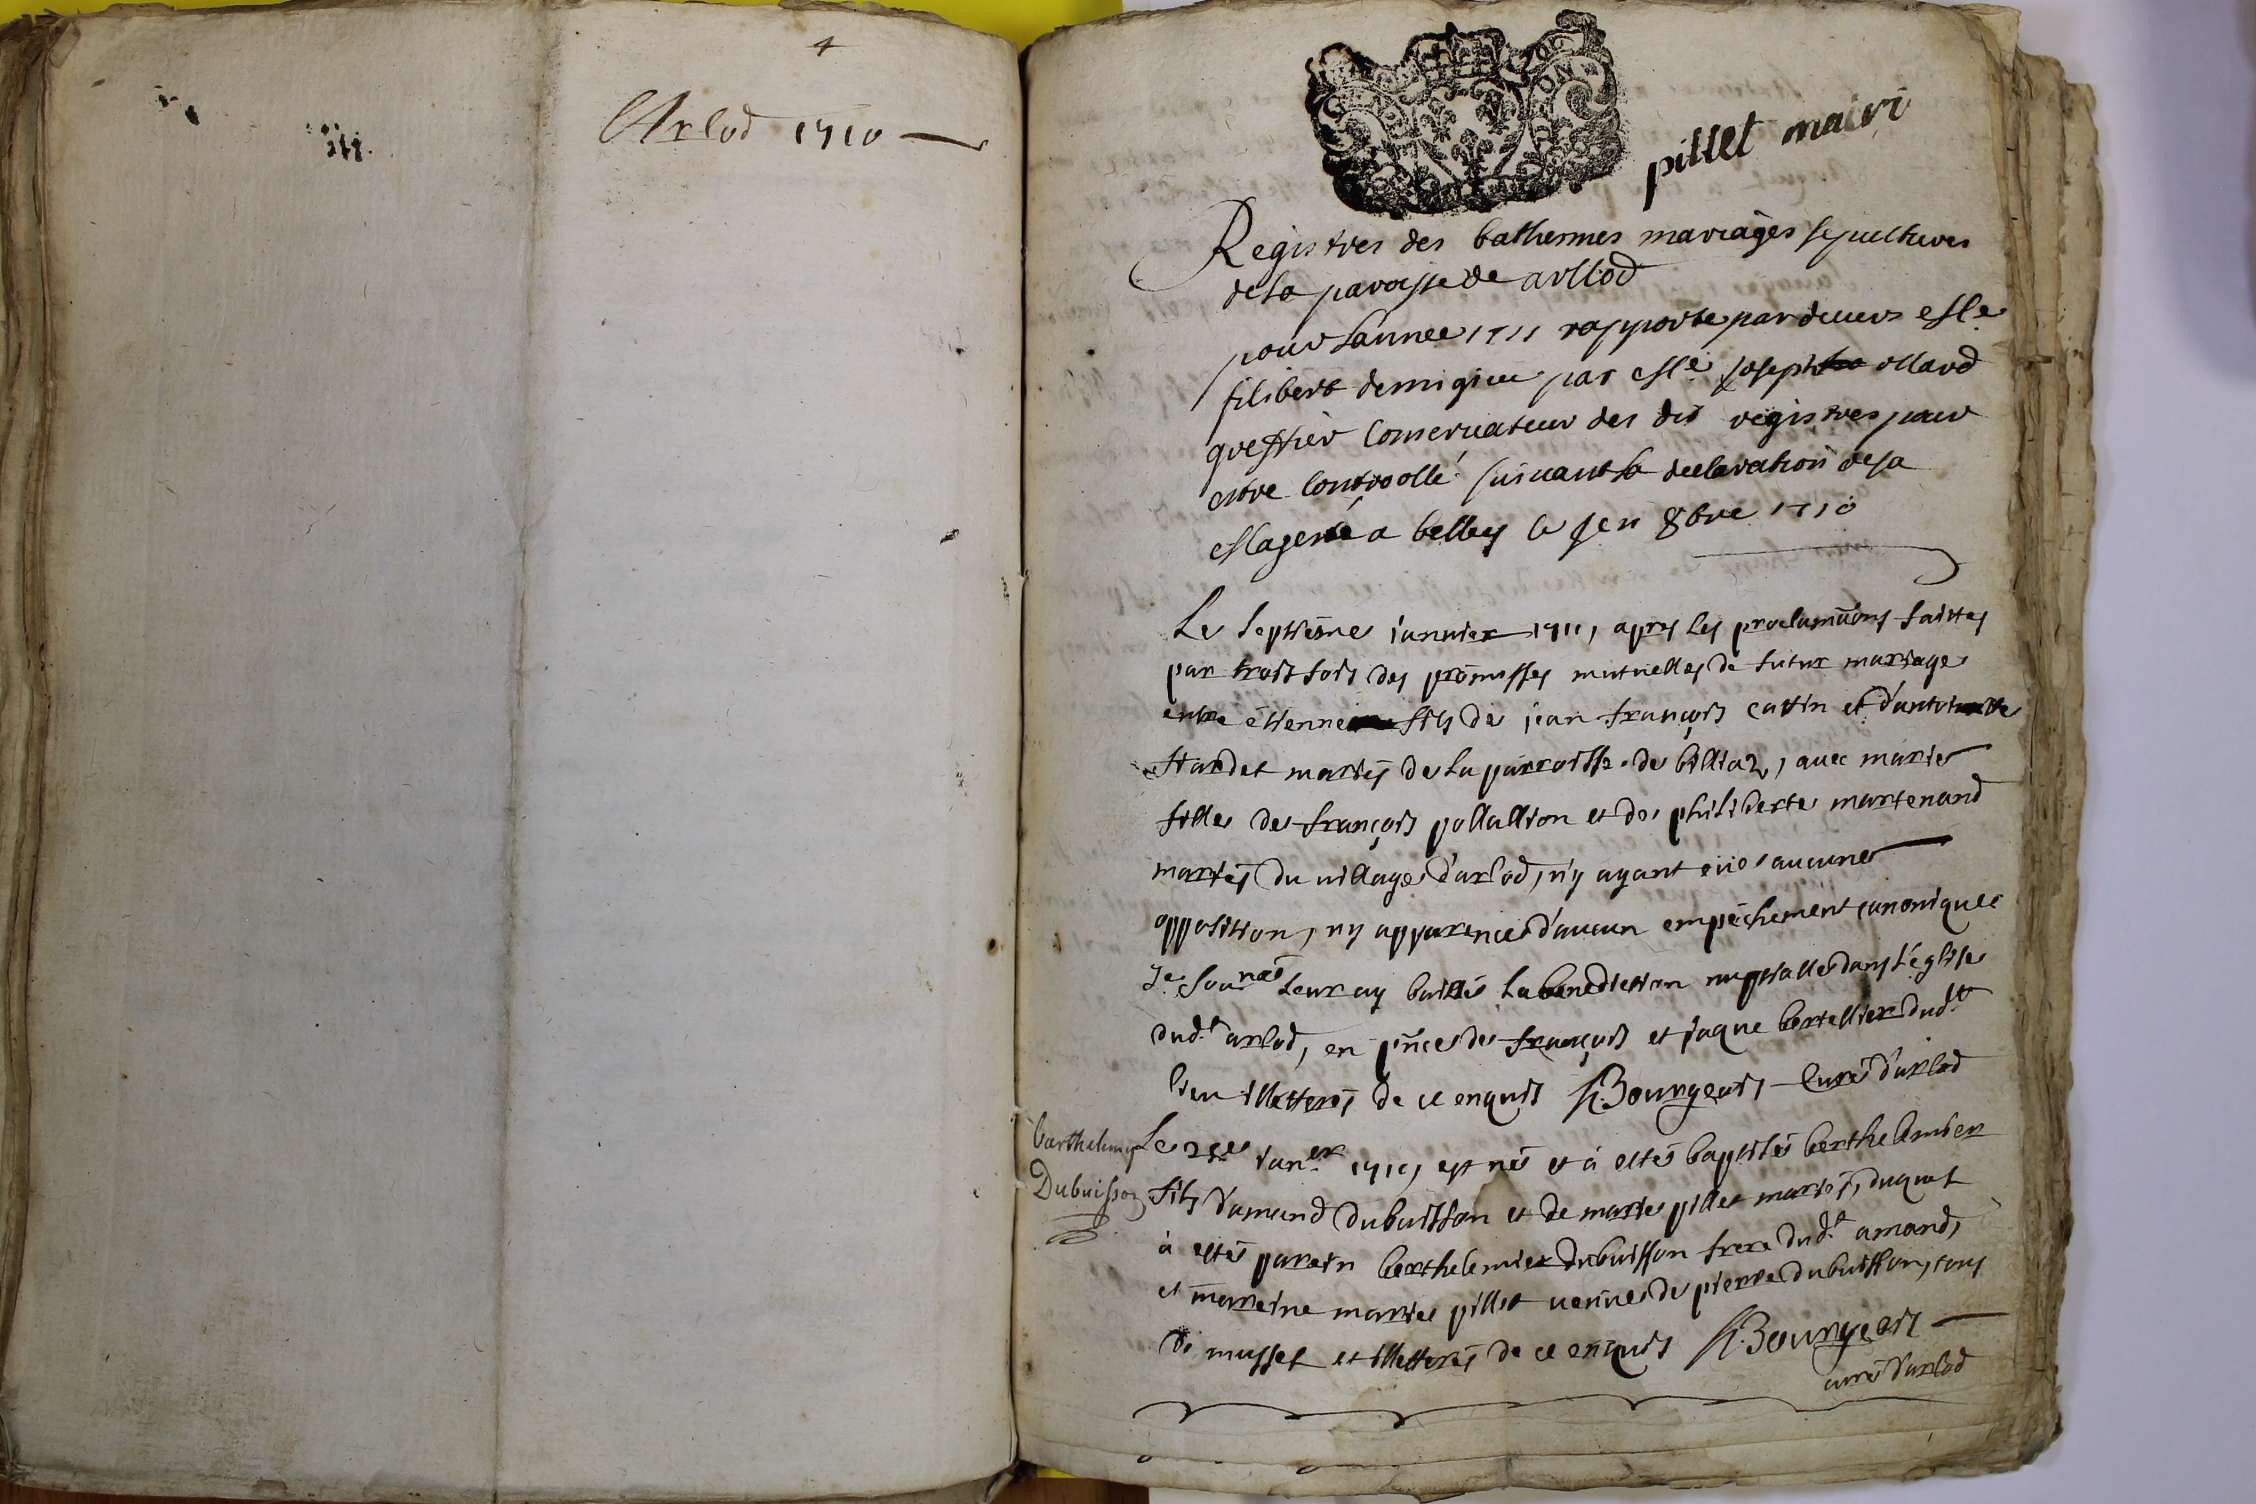 4
Arlod 1710
pillet mairi
Registres des bathemes mariages sepultures
de la paroisse de arllod
pour lannee 1711 rapporte par devers Me
filibert demigieu par Me joseph ollard
greffier Conservateur des dis registres pour
estre Controollé suivant la declaration de sa
Magesté a belley le 8bre 1710
Le septiesme janvier 1711, apres les proclamaõns faittes
par trois fois des promesses mutuelles de futur mariage
entre étienne fils de jean françois cattin et d'antoinette
mariés de la parroisse de billiaz, avec marie
fille de françois pollallion et de philiberte martenand
mariés du village d'arlod, n'y ayant eüe aucune
opposition, ny apparence d'aucun empéchement canonique
Je sou.né leur ay baillé la benediction nuptialle dans l'église
dud.t arlod, en pñce de françois et jaque bertellier dud.t
lieu illetterés de ce enquis Bourgeois Curé d'arlod
barthelemy
Dubuisson
Le 25e jan.er 1711, est né et à esté baptisé berthelemier
fils d'amand dubuisson et de marie pillet mariés, duquel
à esté parein berthelemier dubuisson frere dud.t amand,
et marreine marie pillet veuve de pierre dubuisson, tous
de mussel et illetterés de ce enquis Bourgeois
curé d'arlod